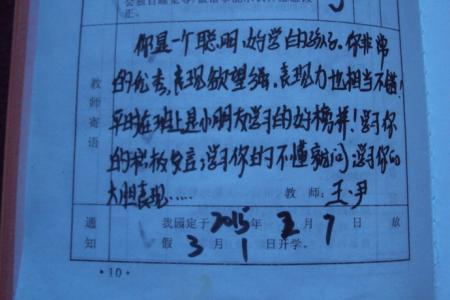 正。
你是一个聪明、好学的孩子。你非常
的优秀，表现欲望强，表现力也相当不错！
平时在班上是小朋友学习的好榜样！学习你
的积极发言；学习你的不懂就问；学习你的
大胆表现……
教师：王、尹
教师寄语
通知
我园定于2015年2月7日放
假 3月1日开学。
·10·